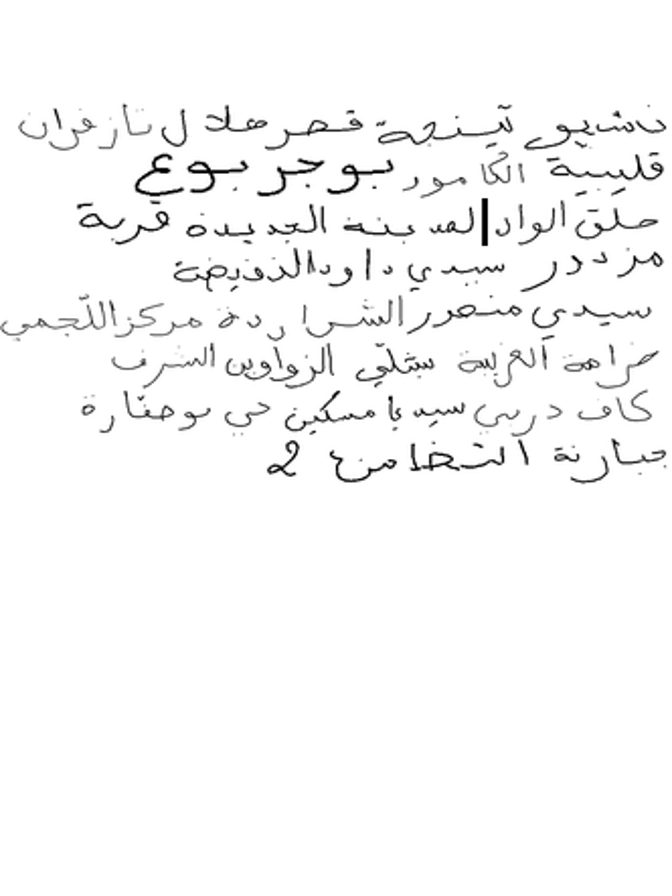 تينجة قصر هلال تازغران
قليبية الكامور بوجربوع
حلق الواد المدينة الجديدة قربة
سيدي داود الذفيضة
سيدي منصور الشرايردة مركز اللّجمي
العزيبة الزواوين الشرف
كاف دربي سيديا مسكين حي بوصفارة
جبارنة التضامن 2